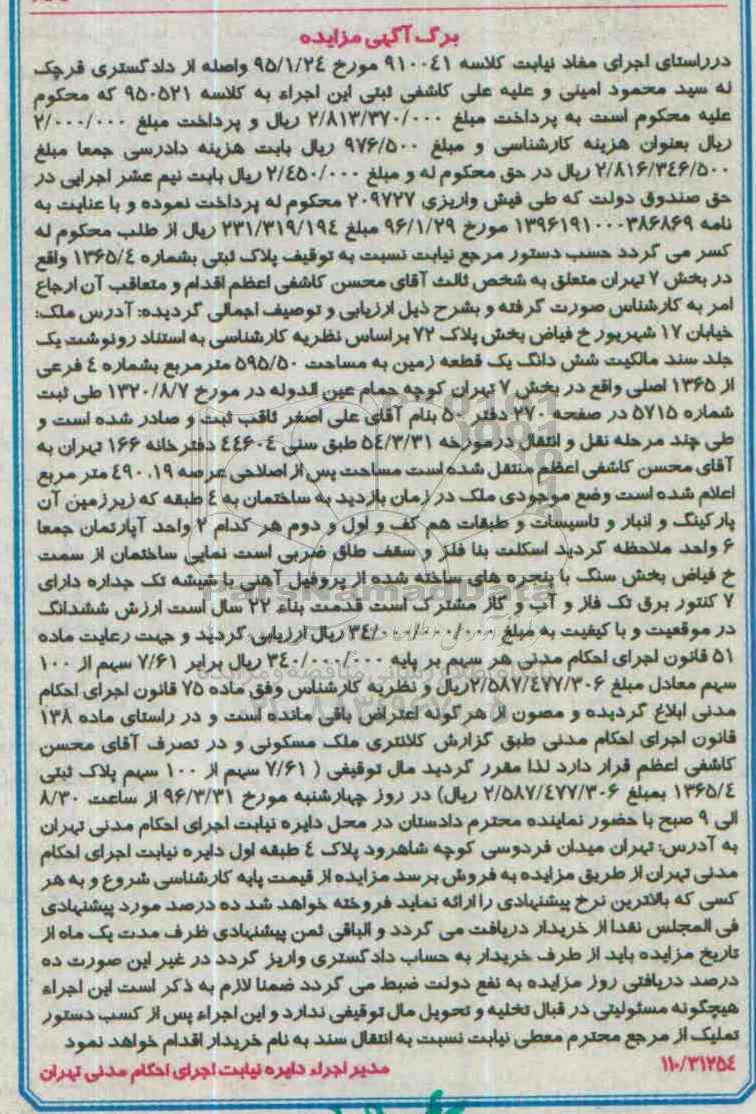 برگ آگهی مزایده
درراستای اجرای مفاد نیابت کلاسه ۹۱۰۰۴۱ مورخ ۹۵/۱/۲۴ واصله از دادگستری قرچک
له سید محمود امینی و علیه علی کاشفی ثبتی این اجراء به کلاسه ۹۵۰۵۲۱ که محکوم
علیه محکوم است به پرداخت مبلغ ۲/۸۱۳/۳۷۰/۰۰۰ ریال و پرداخت مبلغ ۲/۰۰۰/۰۰۰
ریال بعنوان هزینه کارشناسی و مبلغ ۹۷۶/۵۰۰ ریال بابت هزینه دادرسی جمعا مبلغ
۲/۸۱۶/۳۴۶/۵۰۰ ریال در حق محکوم له و مبلغ ۲/۴۵۰/۰۰۰ ریال بابت نیم عشر اجرایی در
حق صندوق دولت که طی فیش واریزی ۲۰۹۷۲۷ محکوم له پرداخت نموده و با عنایت به
نامه ۱۳۹۶۱۹۱۰۰۰۳۸۶۸۶۹ مورخ ۹۶/۱/۲۹ مبلغ ۲۳۱/۳۱۹/۱۹۴ ریال از طلب محکوم له
کسر می گردد حسب دستور مرجع نیابت نسبت به توقیف پلاک ثبتی بشماره ۱۳۶۵/۴ واقع
در بخش ۷ تهران متعلق به شخص ثالث آقای محسن کاشفی اعظم اقدام و متعاقب آن ارجاع
امر به کارشناس صورت گرفته و بشرح ذیل ارزیابی و توصیف اجمالی گردیده: آدرس ملک:
خیابان ۱۷ شهریور خ فیاض بخش پلاک ۷۲ براساس نظریه کارشناسی به استناد رونوشت یک
جلد سند مالکیت شش دانگ یک قطعه زمین به مساحت ۵۹۵/۵۰ مترمربع بشماره ۴ فرعی
از ۱۳۶۵ اصلی واقع در بخش ۷ تهران کوچه حمام عین الدوله در مورخ ۱۳۲۰/۸/۷ طی ثبت
شماره ۵۷۱۵ در صفحه ۲۷۰ دفتر ۵۰ بنام آقای علی اصغر ثاقب ثبت و صادر شده است و
طی چند مرحله نقل و انتقال درمورخه ۵۴/۳/۳۱ طبق سنی ۴۴۶۰۴ دفترخانه ۱۶۶ تهران به
آقای محسن کاشفی اعظم منتقل شده است مساحت پس از اصلاحی عرصه ۴۹۰.۱۹ متر مربع
اعلام شده است وضع موجودی ملک در زمان بازدید به ساختمان به ۴ طبقه که زیرزمین آن
پارکینگ و انبار و تاسیسات و طبقات هم کف و اول و دوم هر کدام ۲ واحد آپارتمان جمعا
۶ واحد ملاحظه گردید اسکلت بنا فلز و سقف طاق ضربی است نمایی ساختمان از سمت
خ فیاض بخش سنگ با پنجره های ساخته شده از پروفیل آهنی با شیشه تک جداره دارای
۷ کنتور برق تک فاز و آب و گاز مشترک است قدمت بناء ۲۲ سال است ارزش ششدانگ
در موقعیت و با کیفیت به مبلغ ۳۴/۰۰۰/۰۰۰/۰۰۰ ریال ارزیابی گردید و جهت رعایت ماده
۵۱ قانون اجرای احکام مدنی هر سهم بر پایه ۳۴۰/۰۰۰/۰۰۰ ریال برابر ۷/۶۱ سهم از ۱۰۰
سهم معادل مبلغ ۲/۵۸۷/۴۷۷/۳۰۶ریال و نظریه کارشناس وفق ماده ۷۵ قانون اجرای احکام
مدنی ابلاغ گردیده و مصون از هرگونه اعتراض باقی مانده است و در راستای ماده ۱۳۸
قانون اجرای احکام مدنی طبق گزارش کلانتری ملک مسکونی و در تصرف آقای محسن
کاشفی اعظم قرار دارد لذا مقرر گردید مال توقیفی ( ۷/۶۱ سهم از ۱۰۰ سهم پلاک ثبتی
۱۳۶۵/۴ بمبلغ ۲/۵۸۷/۴۷۷/۳۰۶ ریال) در روز چهارشنبه مورخ ۹۶/۳/۳۱ از ساعت ۸/۳۰
الی ۹ صبح با حضور نماینده محترم دادستان در محل دایره نیابت اجرای احکام مدنی تهران
به آدرس: تهران میدان فردوسی کوچه شاهرود پلاک ۴ طبقه اول دایره نیابت اجرای احکام
مدنی تهران از طریق مزایده به فروش برسد مزایده از قیمت پایه کارشناسی شروع و به هر
کسی که بالاترین نرخ پیشنهادی را ارائه نماید فروخته خواهد شد ده درصد مورد پیشنهادی
فی المجلس نقدا از خریدار دریافت می گردد و الباقی ثمن پیشنهادی ظرف مدت یک ماه از
تاریخ مزایده باید از طرف خریدار به حساب دادگستری واریز گردد در غیر این صورت ده
درصد دریافتی روز مزایده به نفع دولت ضبط می گردد ضمنا لازم به ذکر است این اجراء
هیچگونه مسئولیتی در قبال تخلیه و تحویل مال توقیفی ندارد و این اجراء پس از کسب دستور
تملیک از مرجع محترم معطی نیابت نسبت به انتقال سند به نام خریدار اقدام خواهد نمود
۱۱۰/۳۱۲۵۴ مدیر اجراء دایره نیابت اجرای احکام مدنی تهران